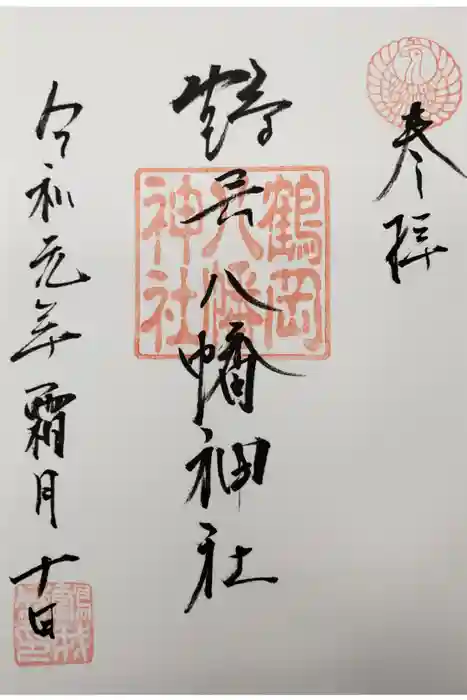 奉拝
鶴岡八幡神社
鶴岡
八幡
神社
令和元年霜月十日